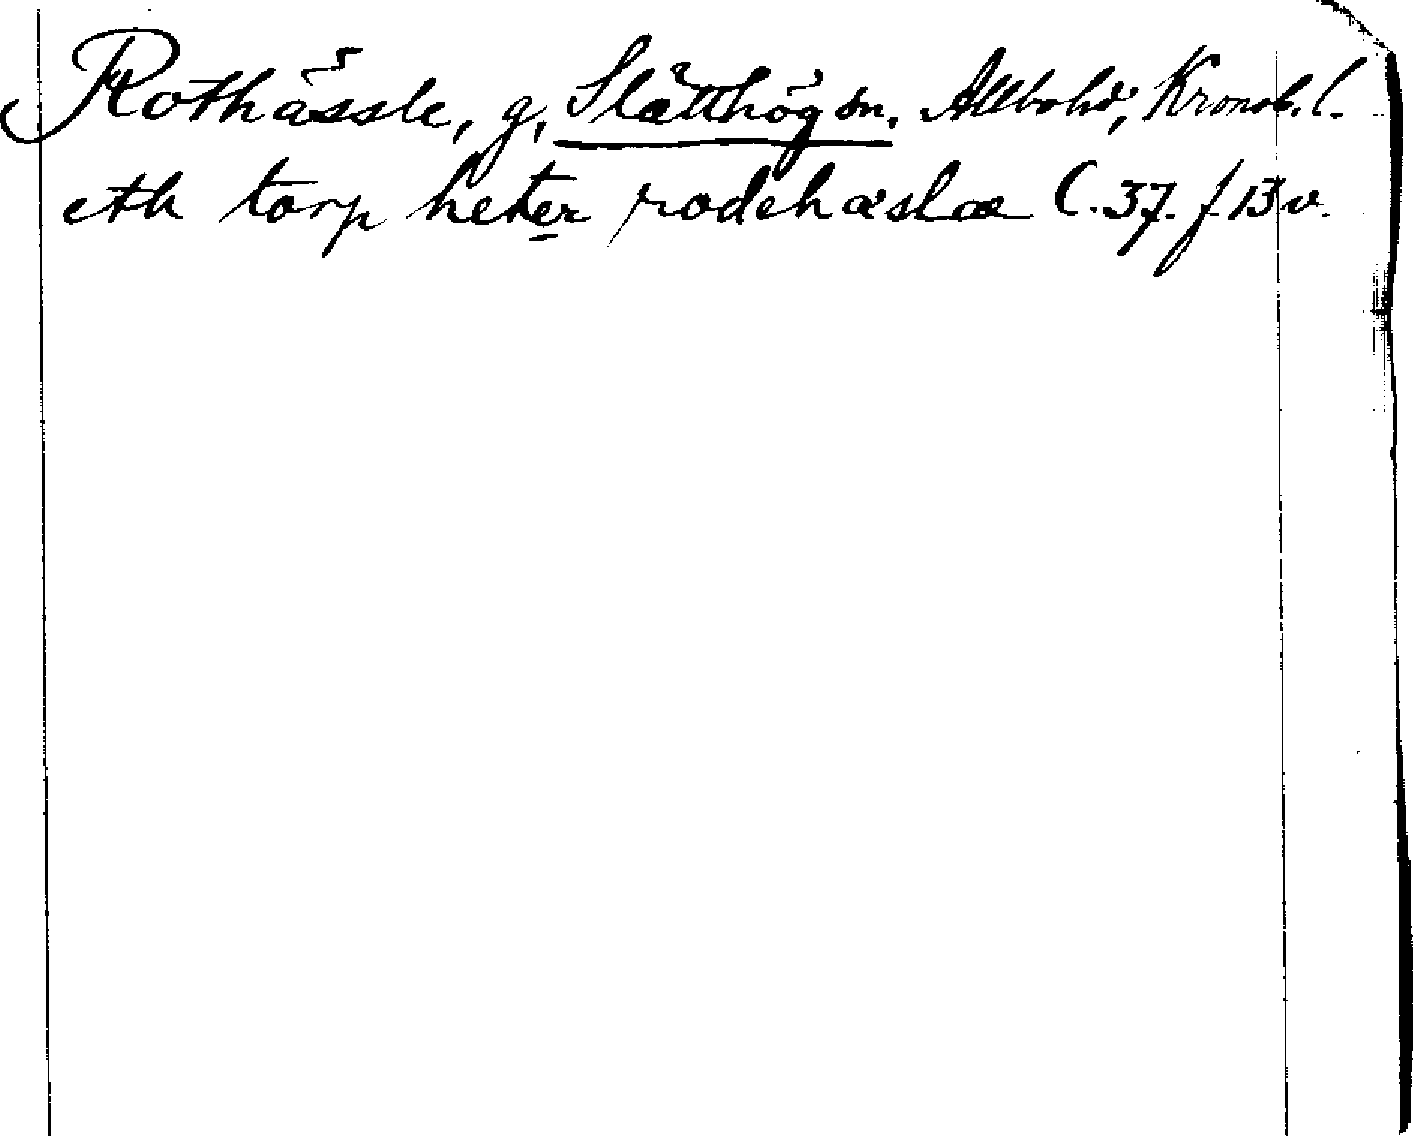 Rothässle, g, Slätthög sn. Allbohd, Kronob. l.
eth torp heter rodehæslæ C. 37. f 13 v.